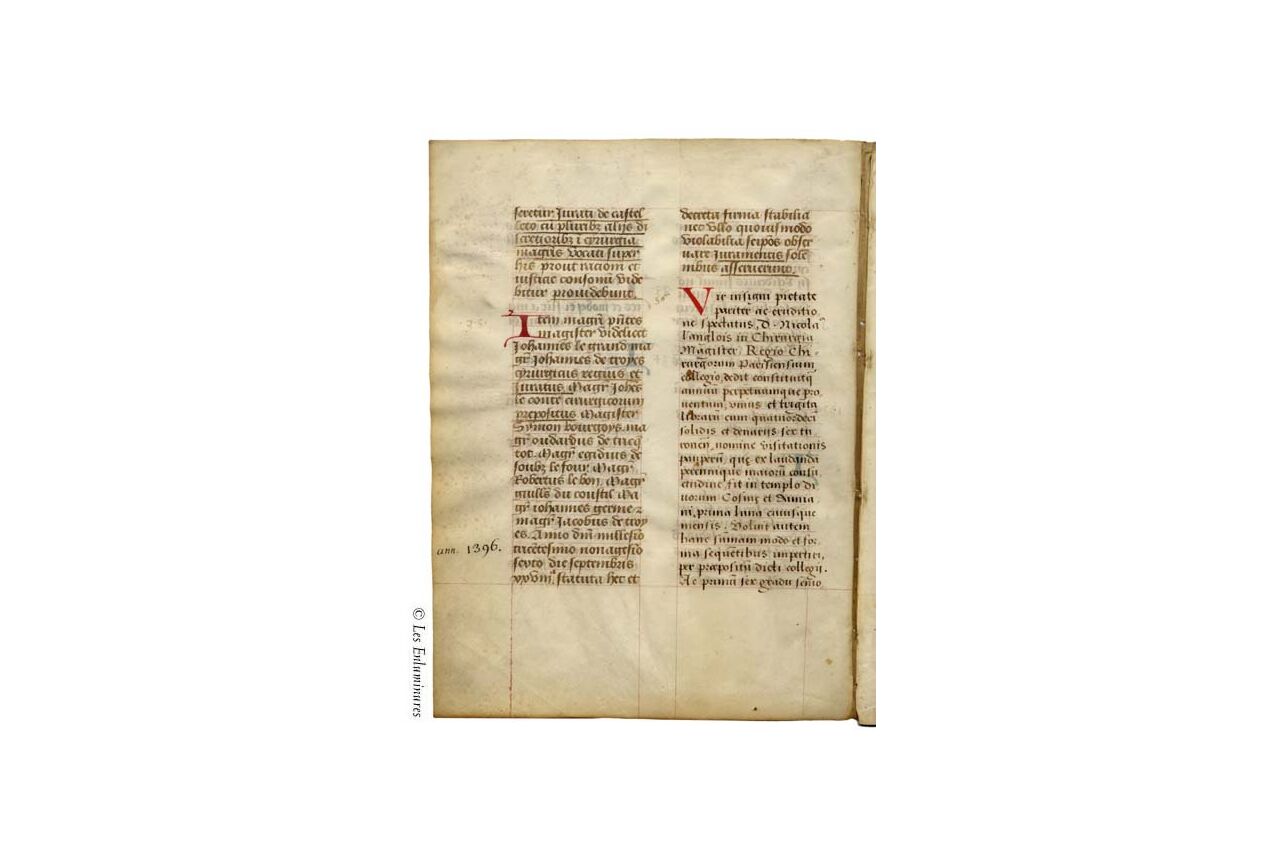 seretur Jurati de castel
leto cū pluribz alijs di
scretioribz i cyrurgia
magr̄is vocati super
his prout racioni et
iusticie consonū vide
bitur prouidebunt.
Item magr̄i p̄ntes
magister videlicet
Johannes le grand ma
gr̄ Johannes de troyes
cyrurgicus regius et
juratus Magr̄ Johēs
le conte cirurgicorum
prepositus Magister
Symon bourgoys, ma
gr̄ oudardus de
Magr̄ egidius de
soubz le four Magr̄
Robertus le bon, Magr̄
guills du Ma
gr̄ iohannes
magr̄ Jacobus de troy
es. Anno dn̄i millesīo
trecētesimo nonagesīo
sexto die septembris
xxvııȷ statuta hec et
ann. 1396.
decreta firma stabilia
nec vllo quouismodo
violabilia seipos obser
uare juramentis sole
mnibus asseruerunt.
Vir insigni pietate
pariter ac eruditio
ne spectatus, D. Nicola
Langlois in Chirurgia
Magister, Regio Chi-
rurgorum Parisiensium
collegio dedit constituitq
annuū perpetuumque pro
uentum, vnius et trigīta
librarū cum quatuordeci
solidis et denarijs sex tu
roneñ, nomine visitationis
pauperū, quę ex laudanda
perennique maiorū consu
etudine fit in templo di
uorum Cosmę et Damia
ni, prima luna cuiusque
mensis. Voluit autem
hanc sūmam modo et for
ma sequētibus impertiri,
per prepositū dicti collegij.
Ac primū sex gradu senio
© Les Enluminures